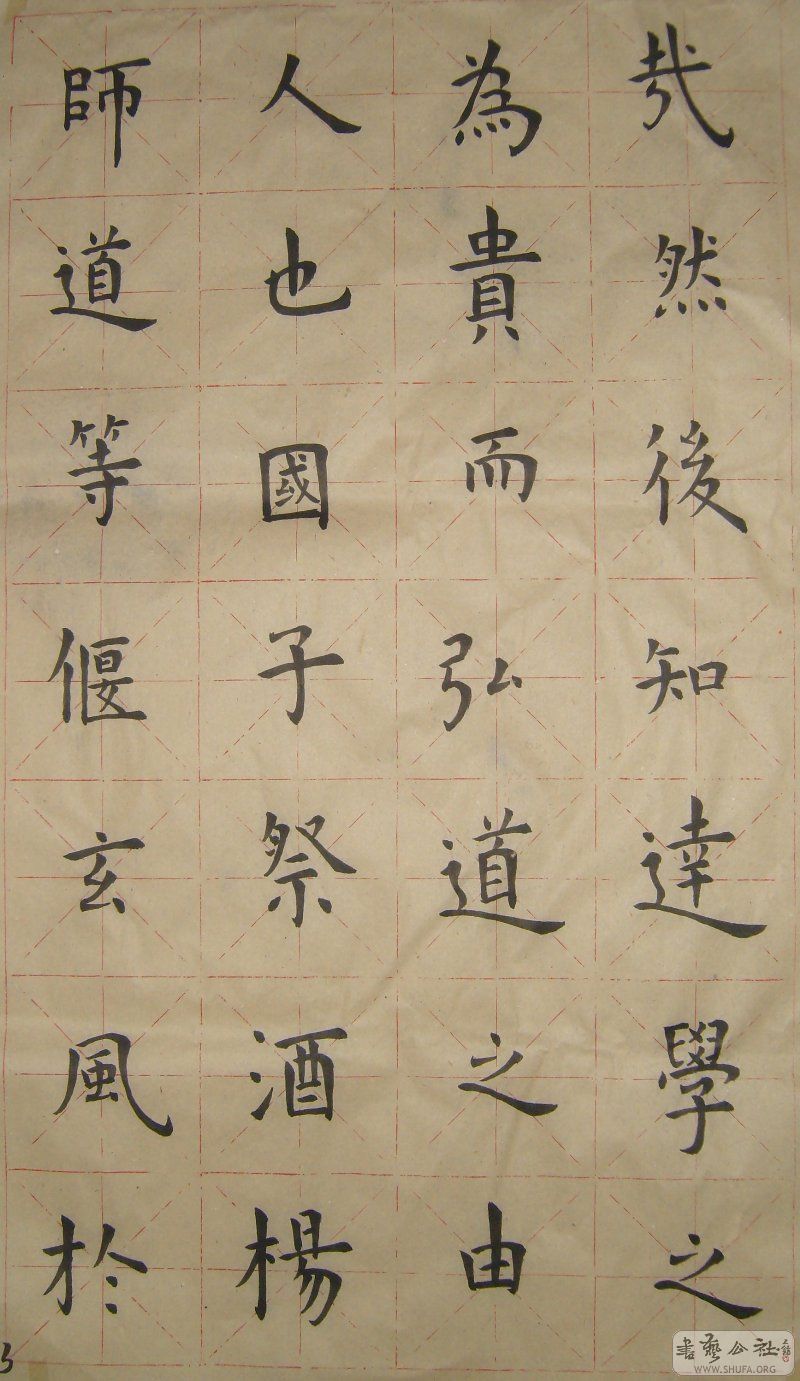 哉然後知達學之
為貴而弘道之由
人也國子祭酒楊
師道等偃玄風於
書藝公社
WWW.SHUFA.ORG